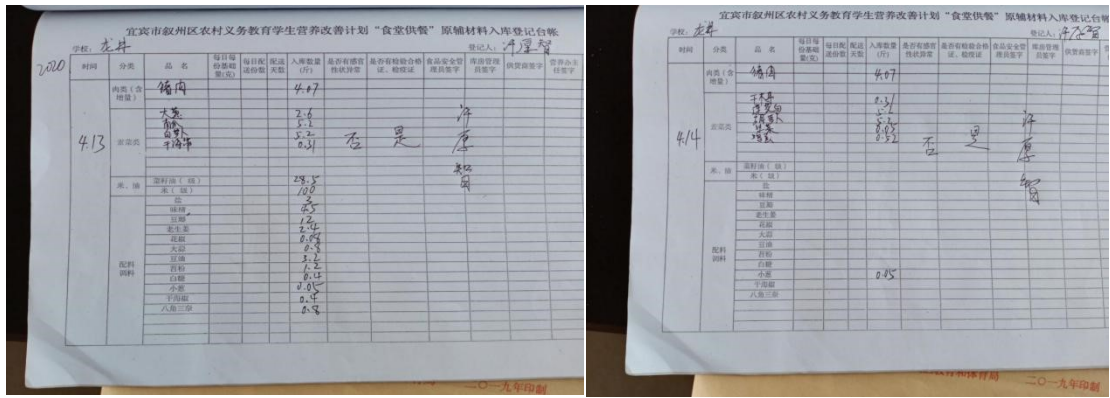 宜宾市叙州区农村义务教育学生营养改善计划“食堂供餐”原辅材料入库登记台帐
学校：龙井 登记人：许厚智
2020
时间 分类 品名 每日每份基础量(克) 每日配送份数 配送天数 入库数量(斤) 是否有感官性状异常 是否有检验合格证、检疫证 食品安全管理员签字 库房管理员签字 供货商签字 营养办主任签字
4.13 肉类（含增量） 猪肉 4.07
大葱 2.6
5.2
白萝卜 5.2
蔬菜类 干海带 0.31 否 是 许厚智
米、油 菜籽油（级） 28.5
米（级） 100
配料调料 盐 3
味精 4.5
豆瓣 12
老生姜 2.4
花椒 0.08
大蒜 0.8
豆油 3.2
苕粉 1.2
白糖 0.4
小葱 0.05
干海椒 0.4
八角三奈 0.8
二〇一九年印制
宜宾市叙州区农村义务教育学生营养改善计划“食堂供餐”原辅材料入库登记台帐
学校：龙井 登记人：许厚智
时间 分类 品名 每日每份基础量(克) 每日配送份数 配送天数 入库数量(斤) 是否有感官性状异常 是否有检验合格证、检疫证 食品安全管理员签字 库房管理员签字 供货商签字
4.14 肉类（含增量） 猪肉 4.07
干木耳 0.31
5.2
胡萝卜 5.2
0.05
0.52
否 是 许厚智
米、油 菜籽油（级）
米（级）
配料调料 盐
味精
豆瓣
老生姜
花椒
大蒜
豆油
苕粉
白糖
小葱 0.05
干海椒
八角三奈
教育和体育局 二〇一九年印制